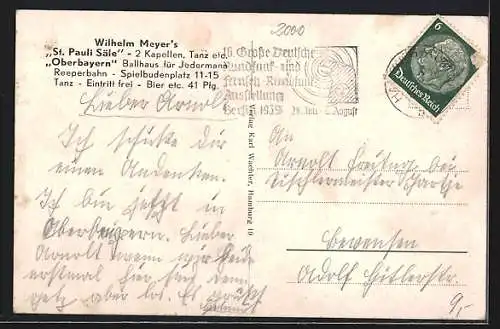 2000
Wilhelm Meyer's
„St. Pauli Säle" - 2 Kapellen, Tanz etc.
„Oberbayern" Ballhaus für Jedermann
Reeperbahn - Spielbudenplatz 11-15
Tanz - Eintritt frei - Bier etc. 41 Pfg.
16. Große Deutsche
Rundfunk- und
Fernseh-Rundfunk
Ausstellung
Berlin 1939 28. Juli - 6. August
6
Deutsches Reich
Lieber Arnolt
Ich schicke dir
einen Andenken.
Ich bin jetzt in
Oberbayern. Lieber
Arnolt wenn wir
erstmal hier sind dann
geht aber los. Es grüßt
Verlag Karl Wachter, Hamburg 19
An
Arnolt Freitag bei
Tischlermeister
Bevensen
Adolf Hitlerstr.
9,-